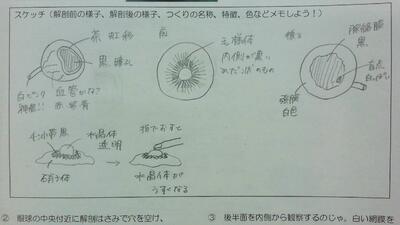 スケッチ（解剖前の様子、解剖後の様子、つくりの名称、特徴、色などメモしよう！）
茶 虹彩
黒
白
血管
赤
前
毛様体
内側が黒い
後ろ
黒
盲点
白っぽい
強膜
白色
チン小帯 黒
水晶体
透明
硝子体
指でおすと
水晶体が
うすくなる
② 眼球の中央付近に解剖はさみで穴を空け、
③ 後半面を内側から観察するのじゃ。白い網膜を